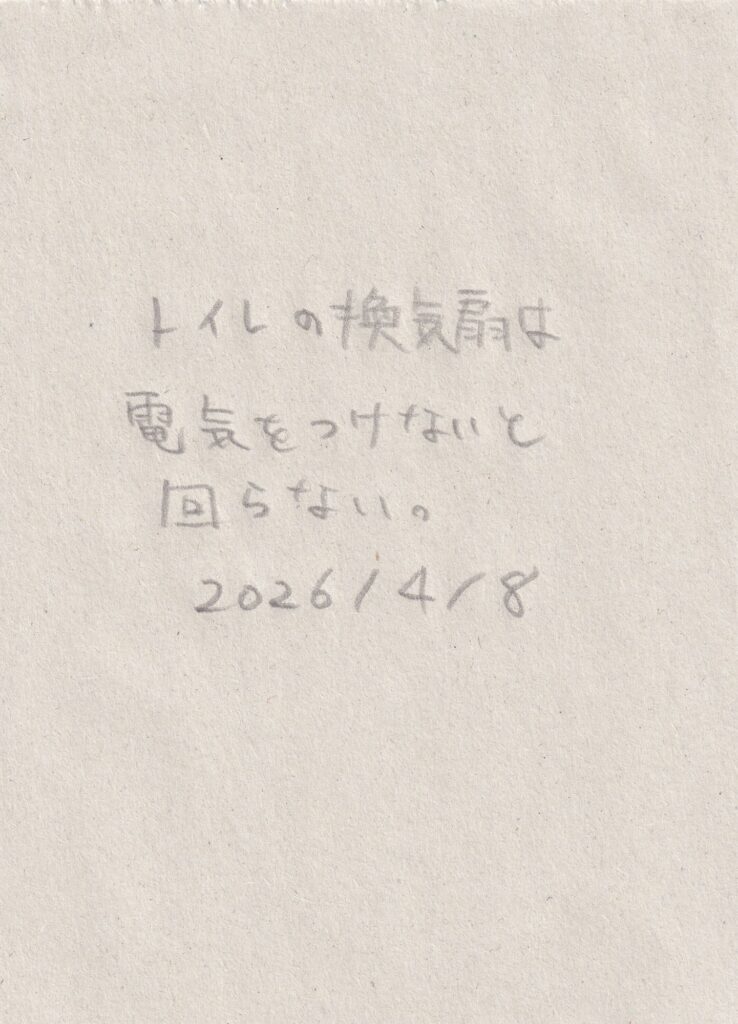 トイレの換気扇は
電気をつけないと
回らない。
2026/4/8